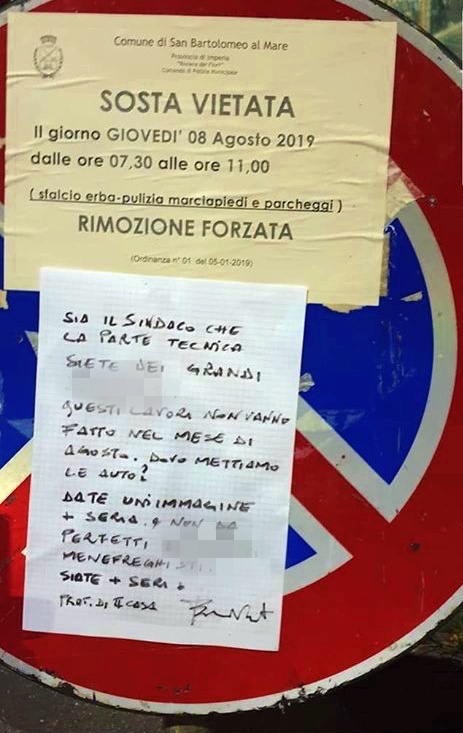 Comune di San Bartolomeo al Mare
Provincia di Imperia
"Riviera dei Fiori"
Comando di Polizia Municipale
SOSTA VIETATA
Il giorno GIOVEDI' 08 Agosto 2019
dalle ore 07,30 alle ore 11,00
( sfalcio erba-pulizia marciapiedi e parcheggi )
RIMOZIONE FORZATA
(Ordinanza n° 01 del 05-01-2019)
SIA IL SINDACO CHE
LA PARTE TECNICA
SIETE DEI GRANDI
QUESTI LAVORI NON VANNO
FATTO NEL MESE DI
AGOSTO. DOVO METTIAMO
LE AUTO?
DATE UN'IMMAGINE
+ SERIA. NON DA
PERFETTI
MENEFREGHISTI.
SIATE + SERI.
PROT. DI II CASA